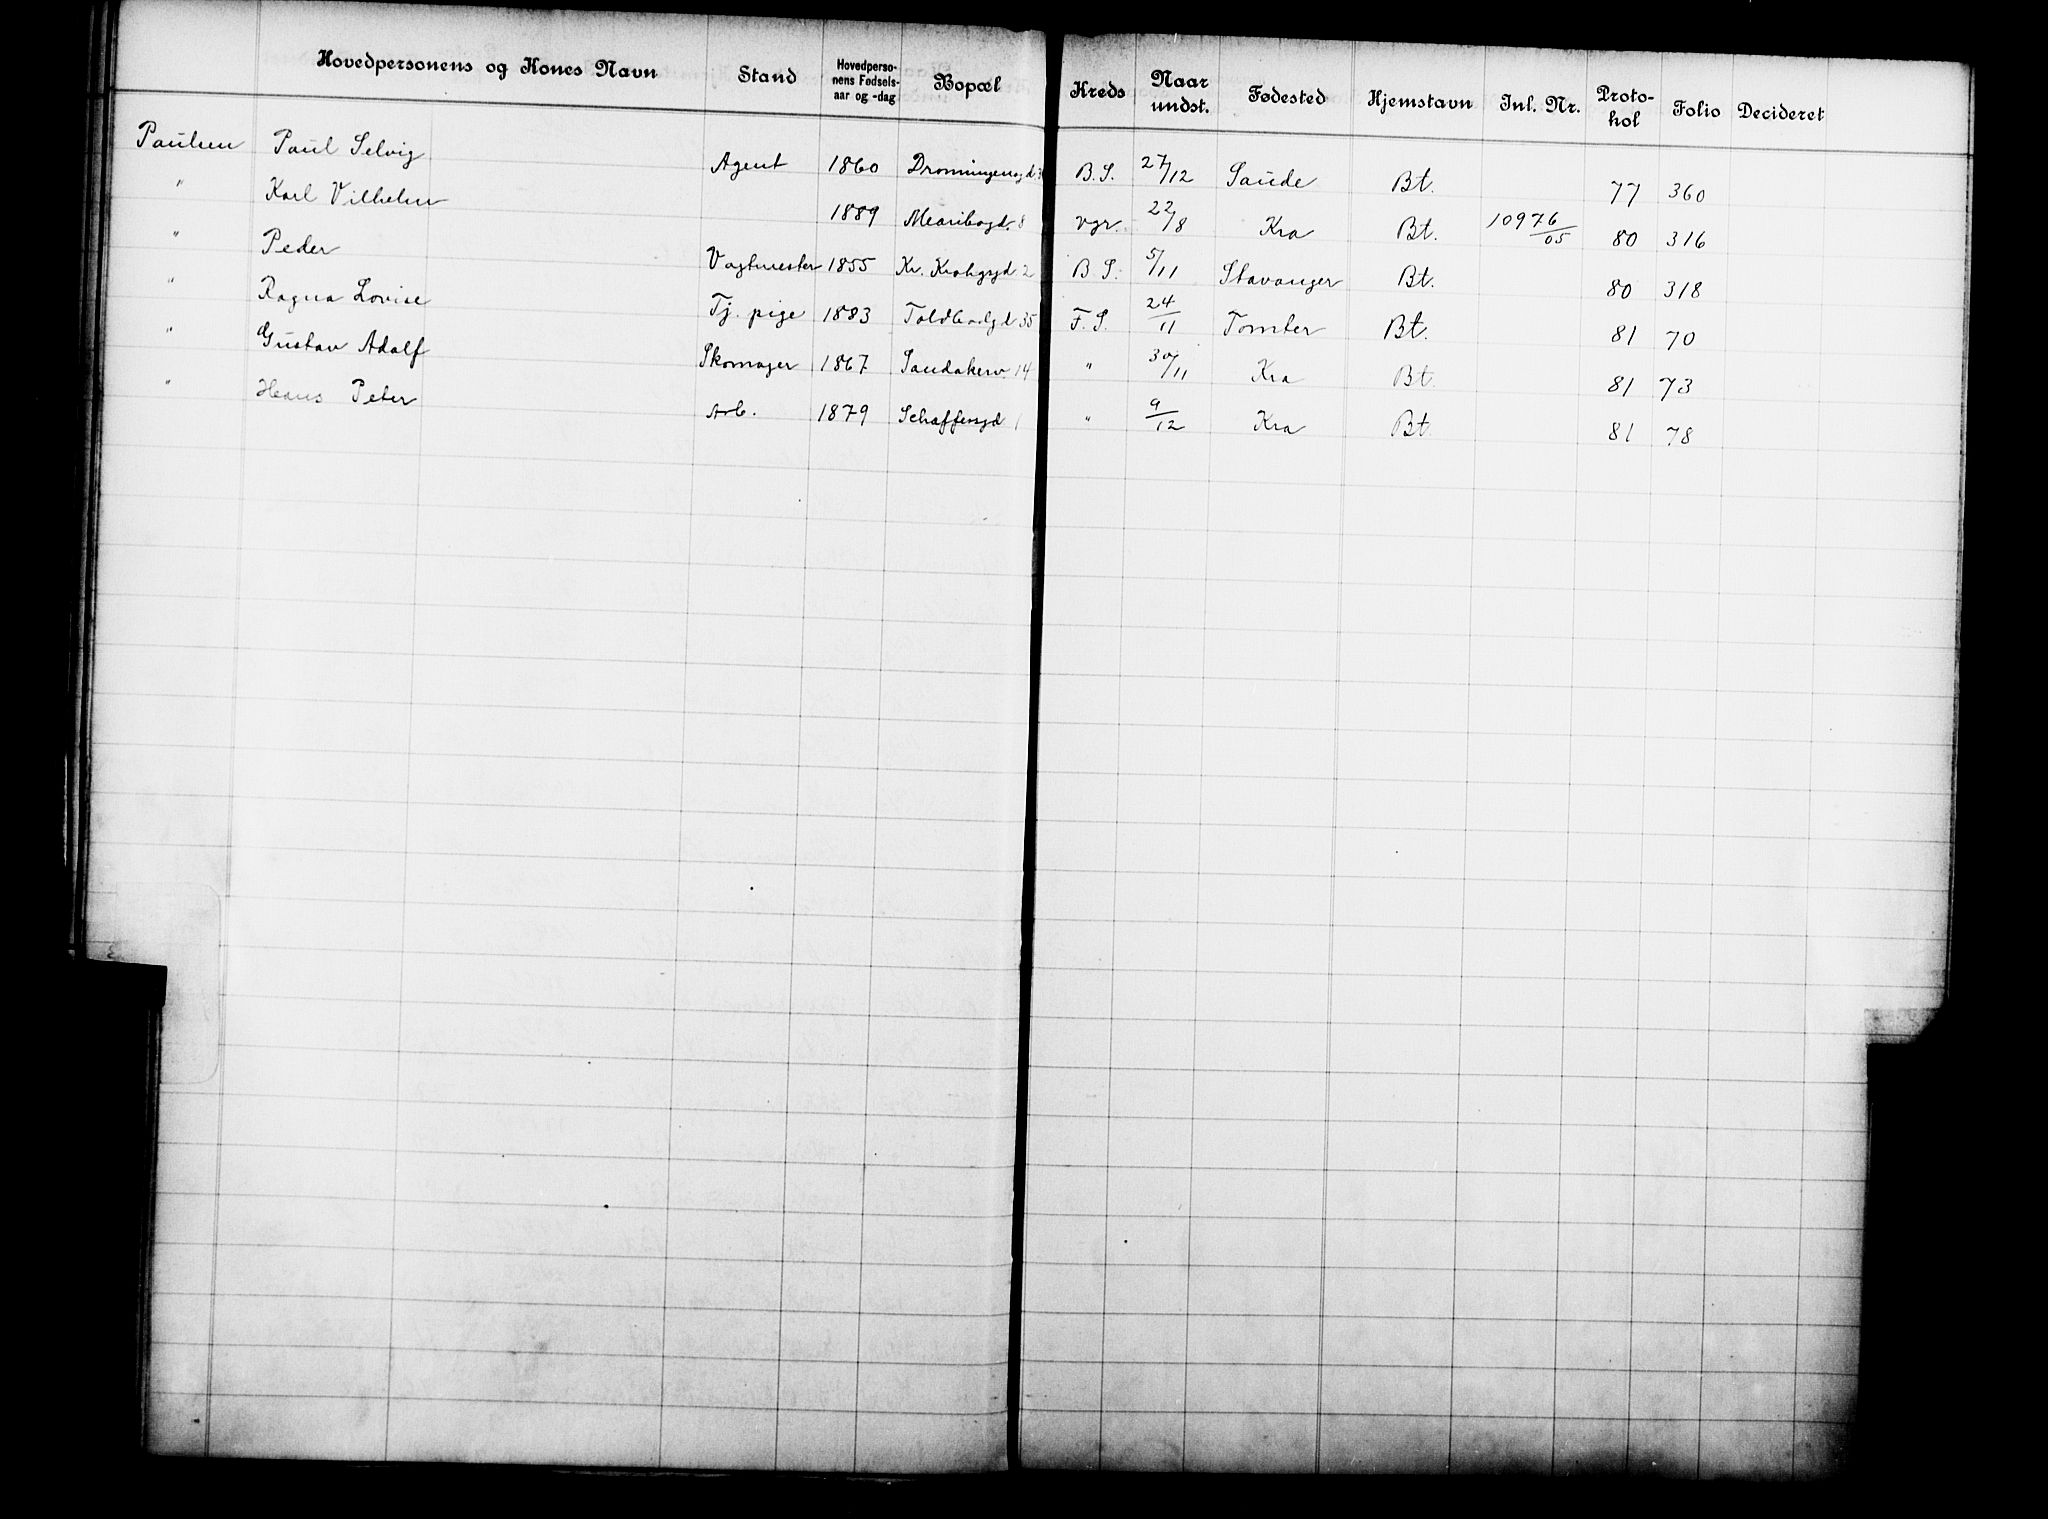 Hovedpersonens og Kones Navn Stand Hovedpersonens Fødselsaar og -dag Bopæl Kreds Naar undst. Fødested Hjemstavn Inl. Nr. Protokol Folio Decideret
Paulsen Paul Selvig Agent 1860 Dronningensgd B.S. 27/12 Saude Bt. 77 360
" Karl Vilhelm 1889 Maribogd. 8 vgr. 22/8 Kra Bt. 10976/05 80 316
" Peder Vagtmester 1855 Kr. Krohgsgd 2 B.S. 5/11 Stavanger Bt. 80 318
" Ragna Lovise Tj. pige 1883 Toldbodgd 35 F.S. 24/11 Tomter Bt. 81 70
" Gustav Adolf Skomager 1867 Sandakerv. 14 " 30/11 Kra Bt. 81 73
" Hans Peter Arb. 1879 Schaffersgd 1 " 9/12 Kra Bt. 81 78